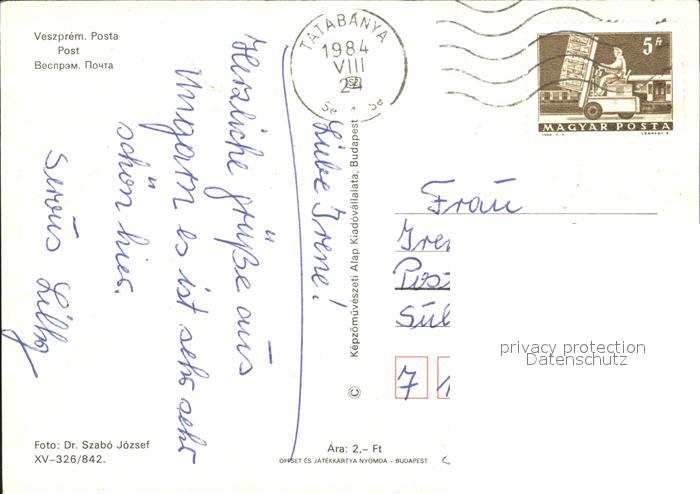 Veszprém. Posta
Post
Веспрэм. Почта
TATABÁNYA
1984
VIII
24
5 Ft
MAGYAR POSTA
Liebe Irene!
Herzliche grüße aus
Ungarn es ist sehr sehr
schön hier.
Servus Lilly
Képzőművészeti Alap Kiadóvállalata, Budapest
©
Frau
Iren
Post
Süd
7 1
privacy protection
Datenschutz
Foto: Dr. Szabó József
XV–326/842.
Ára: 2,– Ft
OFFSET ÉS JÁTÉKKÁRTYA NYOMDA – BUDAPEST